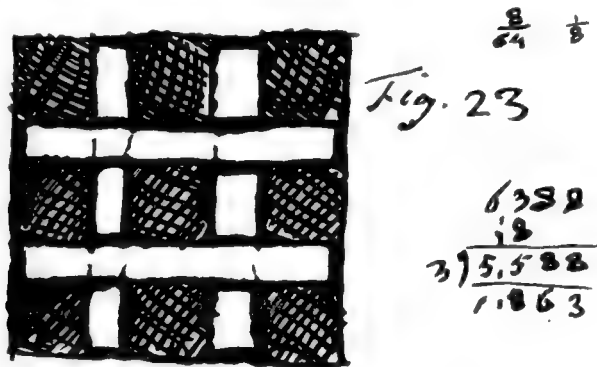 8/64 1/8
Fig. 23
6388
.8
3)5.588
1.863